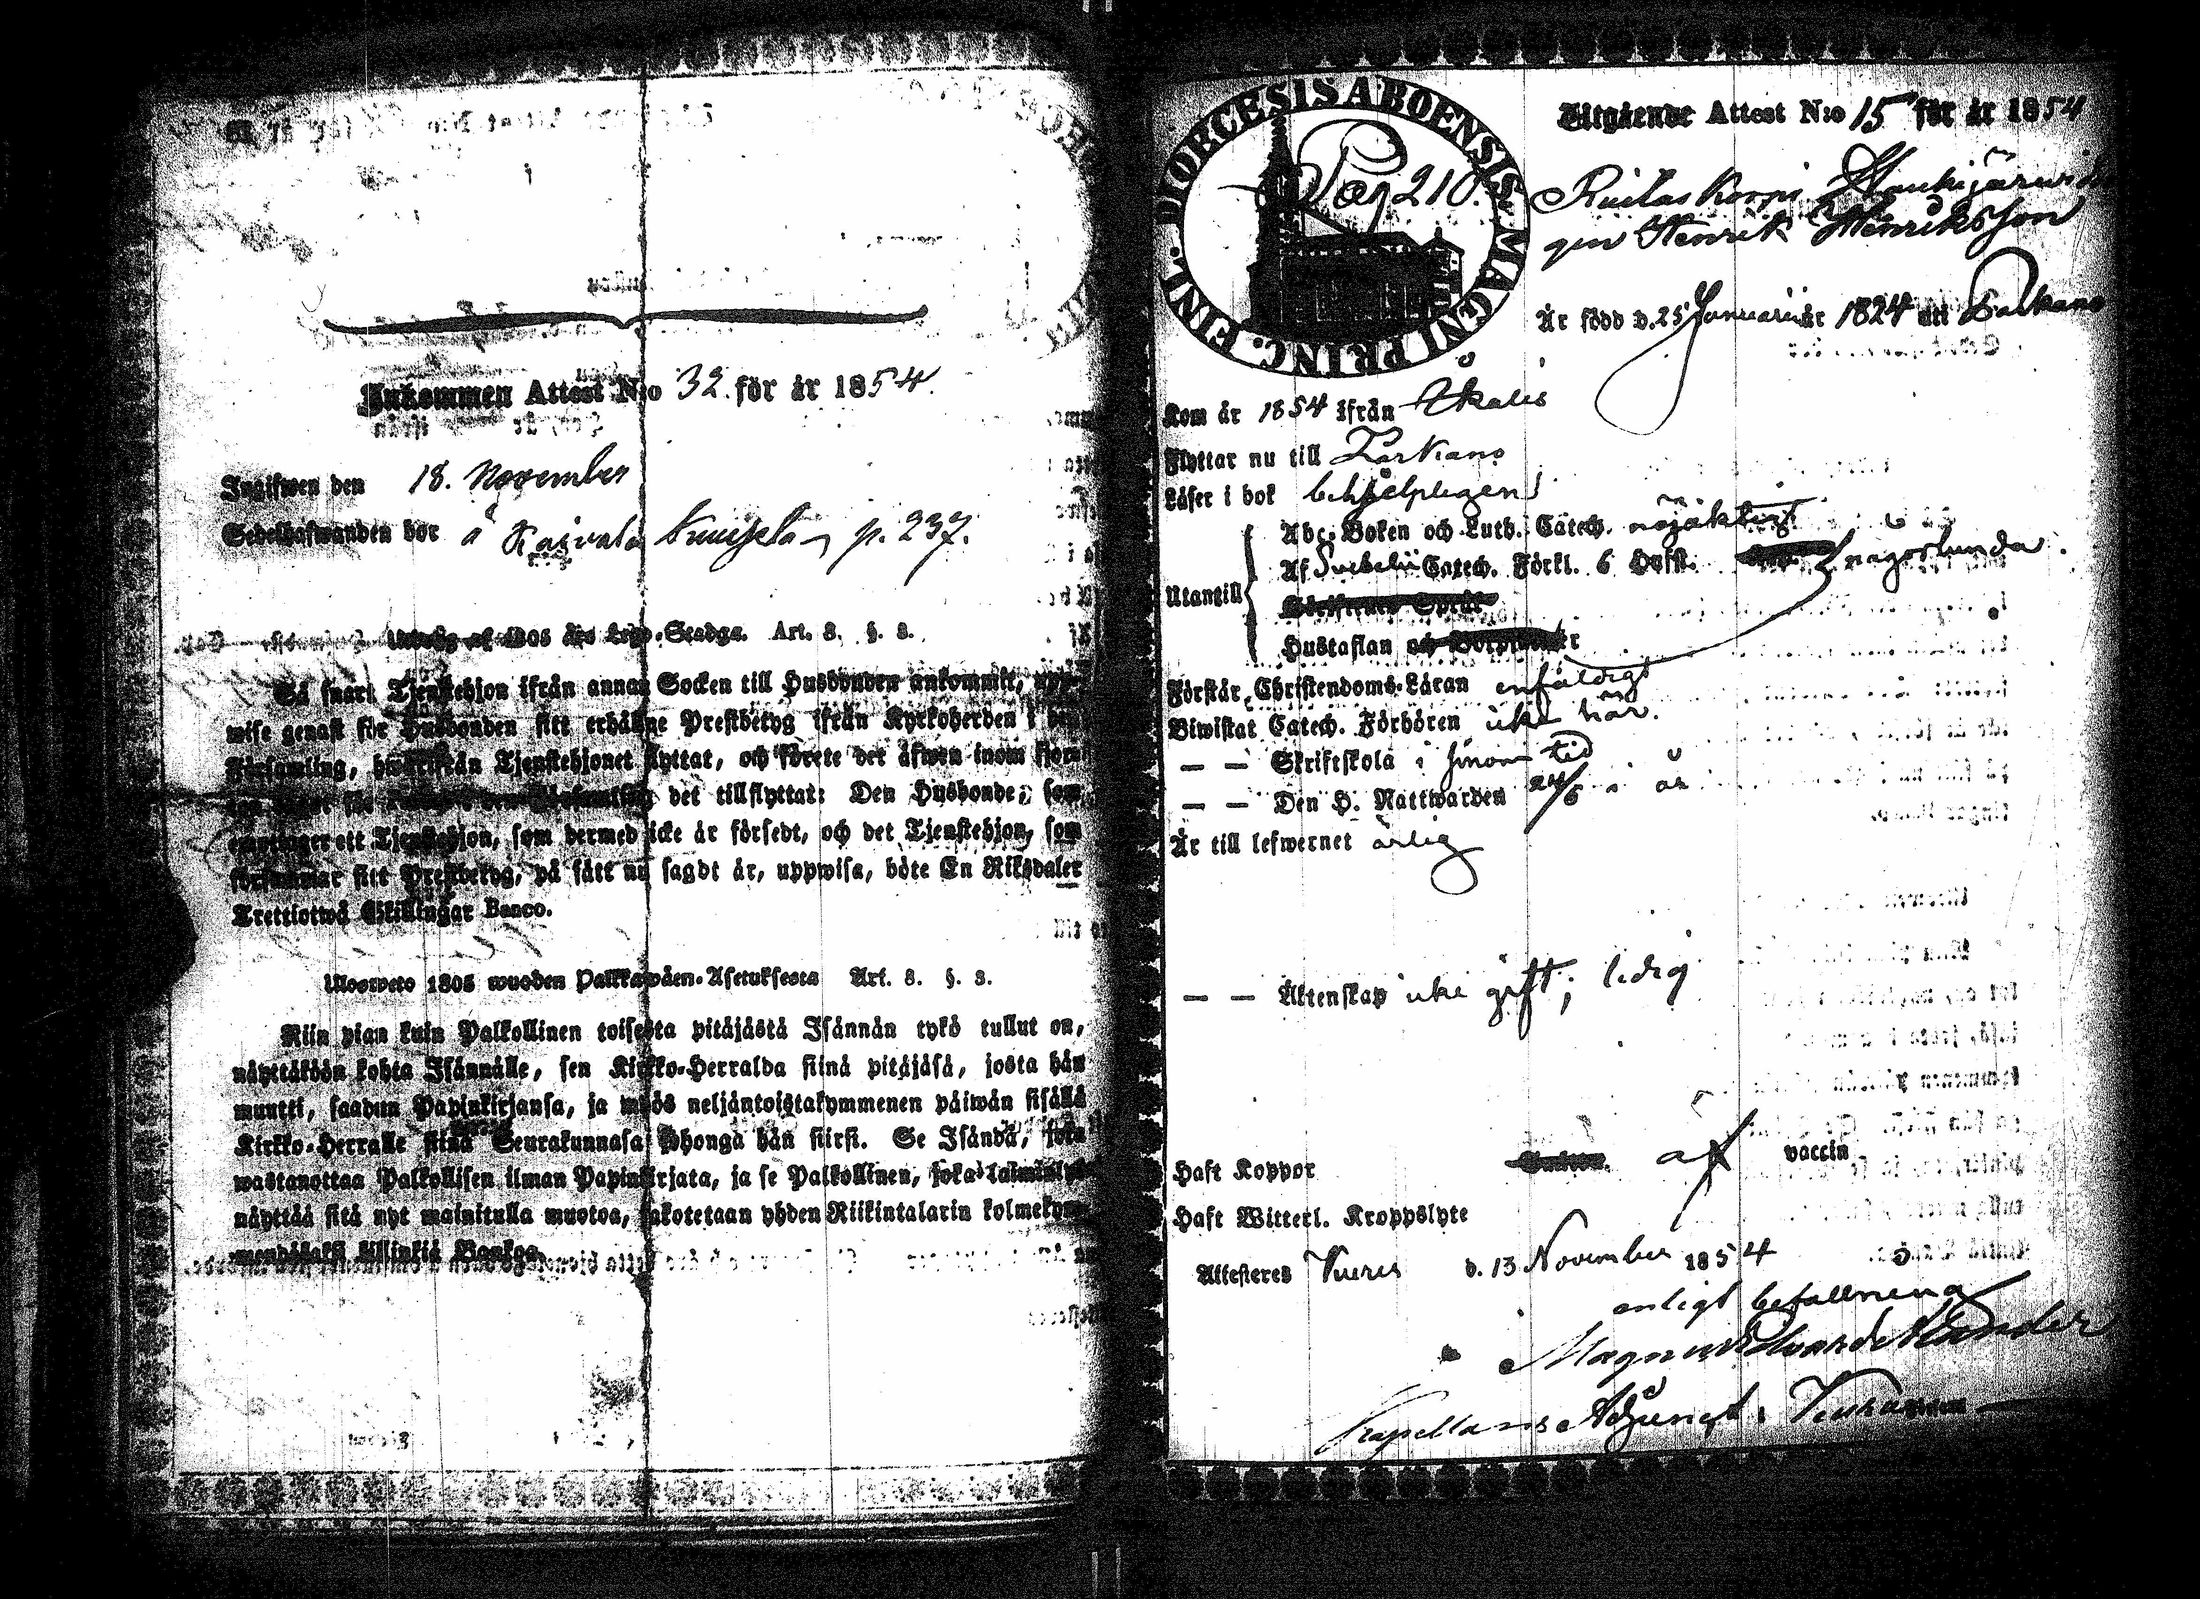 Inkommen Attest N:o 32. för år 1854.
Ingifwen den 18. November
Sedelhafwanden bor å p. 237.
Utdrag af 1805 års Lego-Stadga. Art. 3. §. 3.
Så snart Tjenstehjon ifrån annan Socken till Husbonden ankommit, upp-
wise genast för Husbonden sitt erhållne Prestbetyg ifrån Kyrkoherden i den
Församling, hwarifrån Tjenstehjonet flyttat, och förete det äfwen inom fjor-
det tillflyttat: Den Husbonde, som
emottager ett Tjenstehjon, som dermed icke är försedt, och det Tjenstehjon, som
försummar sitt Prestbetyg, på sätt nu sagdt är, uppwisa, böte En Riksdaler
Trettiotwå Skillingar Banco.
Ulosweto 1805 wuoden Palkkawäen-Asetuksesta Art. 3. §. 3.
Niin pian kuin Palkollinen toisesta pitäjästä Isännän tykö tullut on,
näyttäköön kohta Isännälle, sen Kirkko-Herralda siinä pitäjäsä, josta hän
muutti, saadun Papinkirjansa, ja myös neljäntoistakymmenen päiwän sisällä
Kirkko-Herralle siinä Seurakunnasa johonga hän siirsi. Se Isändä, joka
wastanottaa Palkollisen ilman Papinkirjata, ja se Palkollinen, joka laiminlyö
näyttää sitä nyt mainitulla muotoa, sakotetaan yhden Riikintalarin kolmekym-
mendäkaksi killinkiä Bankoa.
DIOECESIS ABOENSIS MAGNI PRINC. FINL.
Pag 210.
Utgående Attest N:o 15 för år 1854
Henrik Henriksson
Är född d. 25 Januarii år 1824 uti Parkano
Kom år 1854 ifrån Ikalis
Flyttar nu till Parkano
Läser i bok behjelpligen
Utantill
Abc-Boken och Luth. Catech. nöjaktigt
Af Svebelii Catech. Förkl. 6 Hufst. någorlunda.
Hustaflan
Förstår Christendoms-Läran enfaldigt
Biwistat Catech. Förhören icke här.
— — Skriftskola i sinom tid
— — Den H. Nattwarden 24/6 i år
Är till lefwernet ärlig
— — Äktenskap icke gift; ledig
Haft Koppor af vaccin
Haft Witterl. Kroppslyte
Attesteres d. 13 November 1854
enligt befallning
Magnus Edvard
Kapellans Adjunct i